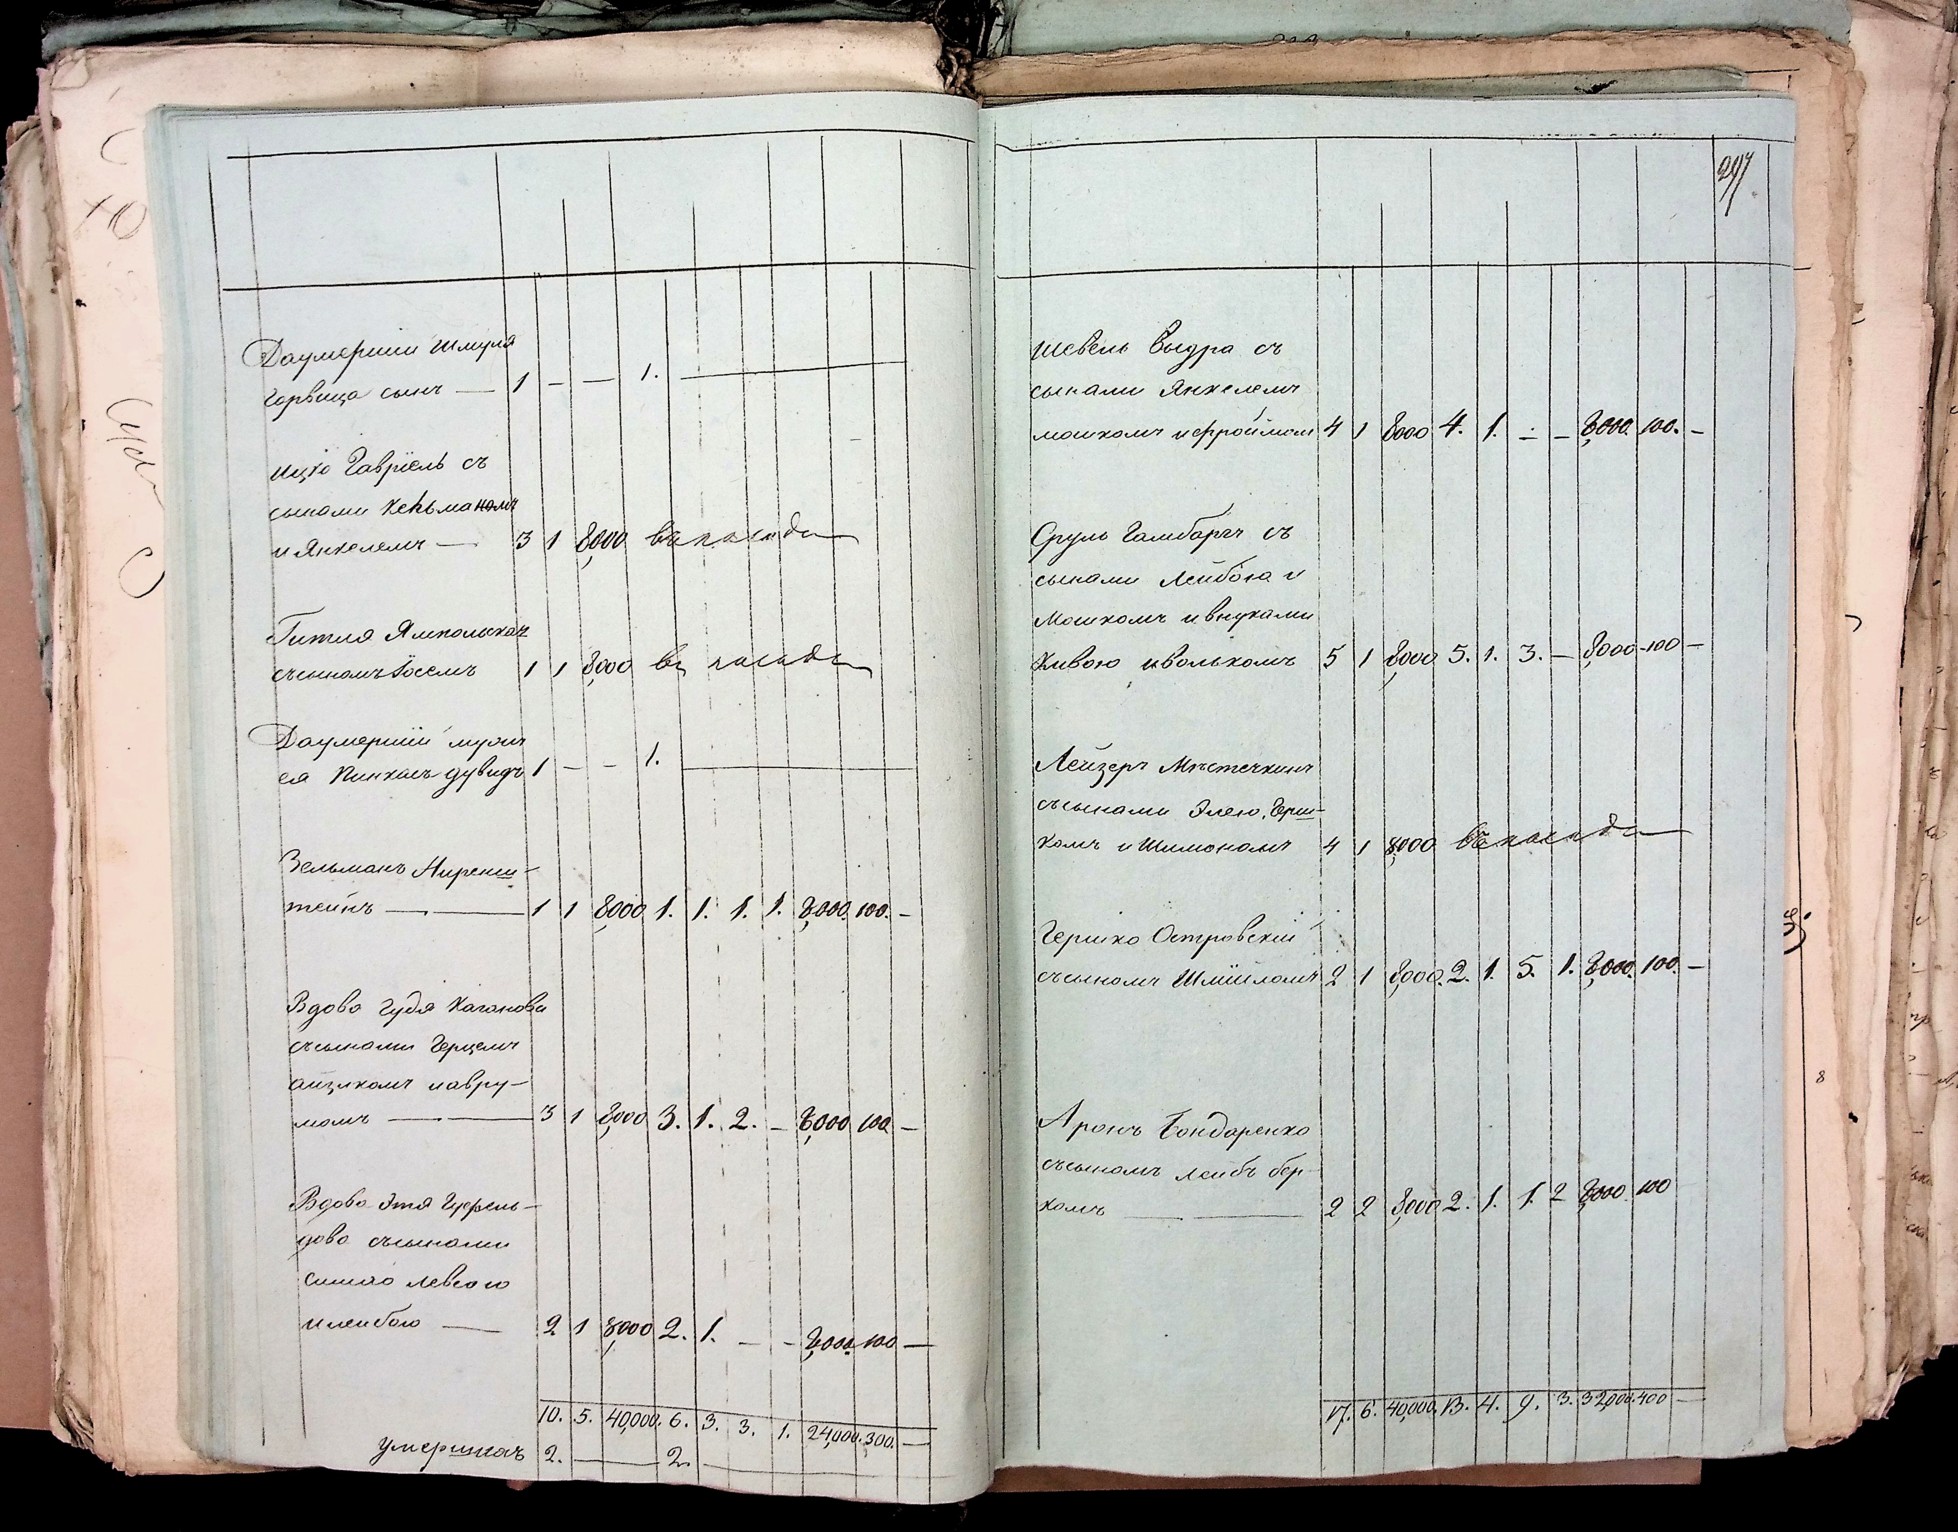 Даумершій Шмула
Горвица сынъ — 1 — — 1.
Ицко Гавріель съ
сынами Кельманомъ
и Янкелемъ — 3 1 8,000 въ посадѣ
Гитля Ямпольская
съсыномъ Іосемъ 1 1 8,000 въ посадѣ
Даумершій мужъ
ея Пинхасъ Дувидъ 1 — — 1.
Зельманъ Миренш-
тейнъ — 1 1 8,000 1. 1. 1. 1. 8,000. 100. —
Вдова Гудя Каганова
съсынами Герцемъ
Айзикомъ иавру-
момъ — 3 1 8,000 3. 1. 2. — 8,000 100 —
Вдова Этя
съсынами
илейбою — 2 1 8,000 2. 1. — — 8,000. 100 —
10. 5. 40,000. 6. 3. 3. 1. 24,000. 300. —
умершихъ 2. — 2. —
297
Шевель Выдра съ
сынами Янкелемъ
мошкомъ ифроймомъ 4 1 8000 4. 1. — — 8,000. 100. —
Сруль Гамбаргъ съ
сынами Лейбою и
Мошкомъ ивнуками
Акивою иволькомъ 5 1 8,000 5. 1. 3. — 8,000 100 —
Лейзеръ Местечкинъ
съсынами Элею, Герш-
комъ и Шимономъ 4 1 8,000 въ посадѣ
Гершко Островскій
съсыномъ Шміиломъ 2 1 8,000. 2. 1. 5. 1. 8,000. 100. —
Аронъ Бондаренко
съсыномъ Лейбъ бер-
комъ — 2 2 8,000 2. 1. 1. 2 8,000. 100
17. 6. 40,000. 13. 4. 9. 3. 32,000. 400 —
8